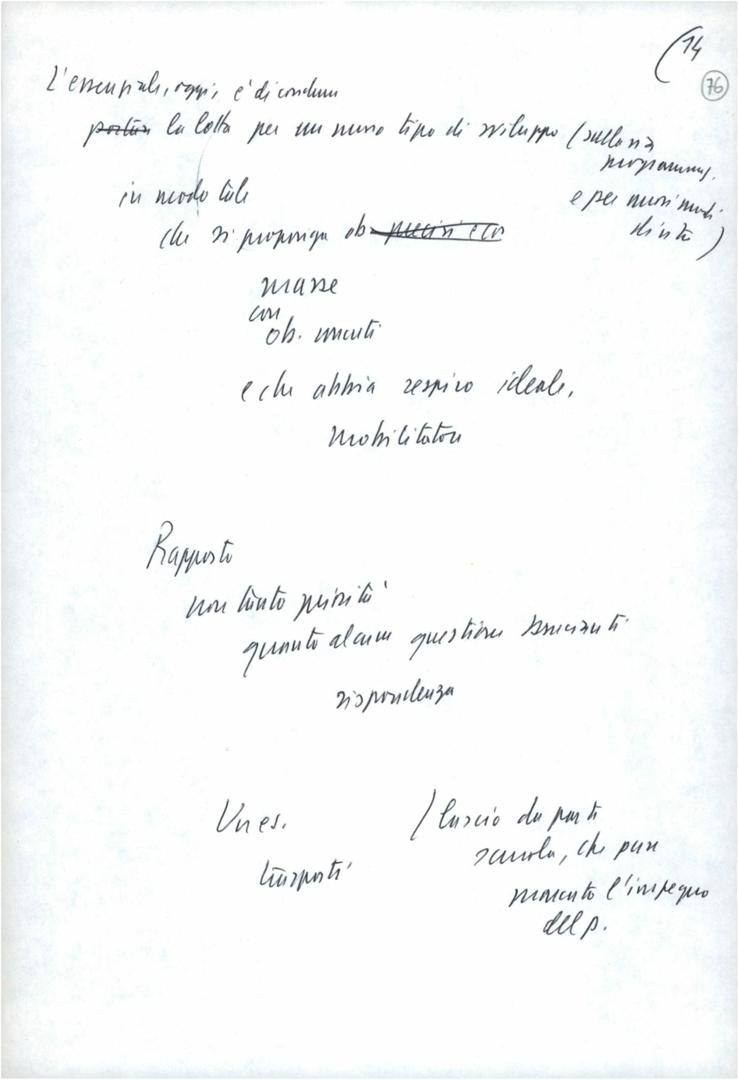 (14
76
L'essenziale, oggi, è di condurre
portare la lotta per un nuovo tipo di sviluppo (sulla via
programmaz.
e per nuovi modi
di vita)
in modo tale
che si proponga ob. precisi e co
masse
con
ob. concreti
e che abbia respiro ideale,
mobilitatore
Rapporto
non tanto priorità
quanto alcune questioni brucianti
rispondenza
Un es.
trasporti
(lascio da parte
scuola, che pure
l'impegno
del p.